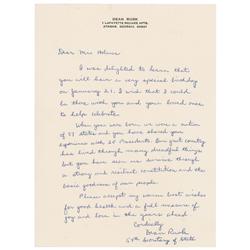 DEAN RUSK
1 LAFAYETTE SQUARE APTS.
ATHENS, GEORGIA 30601
Dear Mrs Holmes
I was delighted to learn that
you will have a very special birthday
on January 21. I wish that I could
be there with you and your loved ones
to help celebrate.
When you were born we were a nation
of 37 states and you have shared your
experience with 20 Presidents. Our great country
has lived through many dreadful things
but you have seen us survive through
a strong and resilient constitution and the
basic goodness of our people.
Please accept my warm best wishes
for good health and a full measure of
joy and love in the years ahead
Cordially
Dean Rusk
54th Secretary of State